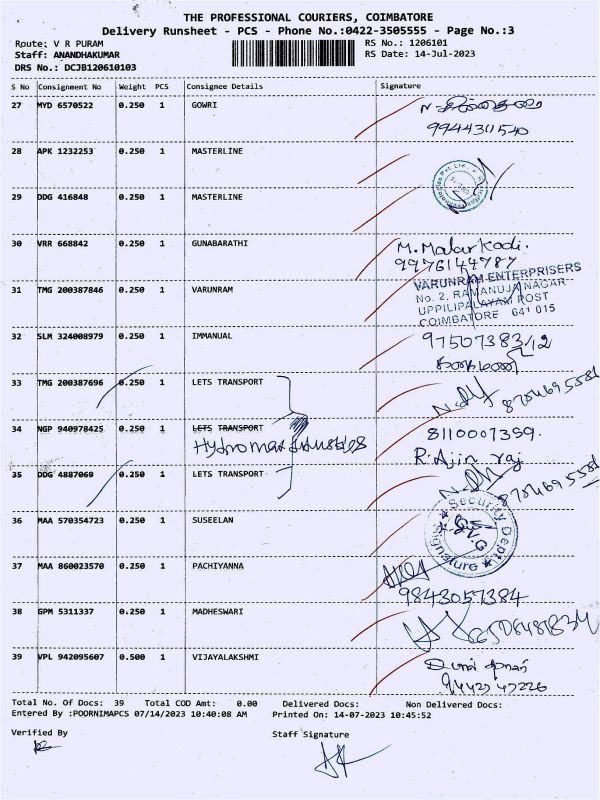 THE PROFESSIONAL COURIERS, COIMBATORE
Delivery Runsheet - PCS - Phone No.:0422-3505555 - Page No.:3
Route: V R PURAM
RS No.: 1206101
Staff: ANANDHAKUMAR
RS Date: 14-Jul-2023
DRS No.: DCJB120610103
S No Consignment No Weight PCS Consignee Details Signature
27 MYD 6570522 0.250 1 GOWRI
9944311540
28 APK 1232253 0.250 1 MASTERLINE
29 DDG 416848 0.250 1 MASTERLINE
30 VRR 668842 0.250 1 GUNABARATHI M. Malar Kodi.
9976144787
31 TMG 200387846 0.250 1 VARUNRAM VARUNRAM ENTERPRISERS
No. 2, RAMANUJA NAGAR
UPPILIPALAYAM POST
COIMBATORE 641 015
32 SLM 324008979 0.250 1 IMMANUAL
33 TMG 200387696 0.250 1 LETS TRANSPORT
34 NGP 940978425 0.250 1 LETS TRANSPORT 8110007399.
Hydromax Industries R. Ajin raj
35 DDG 4887069 0.250 1 LETS TRANSPORT
36 MAA 570354723 0.250 1 SUSEELAN
Security Dept
Signature
37 MAA 860023570 0.250 1 PACHIYANNA
9843057384
38 GPM 5311337 0.250 1 MADHESWARI
39 VPL 942095607 0.500 1 VIJAYALAKSHMI
9442747226
Total No. Of Docs: 39 Total COD Amt: 0.00 Delivered Docs: Non Delivered Docs:
Entered By :POORNIMAPCS 07/14/2023 10:40:08 AM Printed On: 14-07-2023 10:45:52
Verified By
Staff Signature